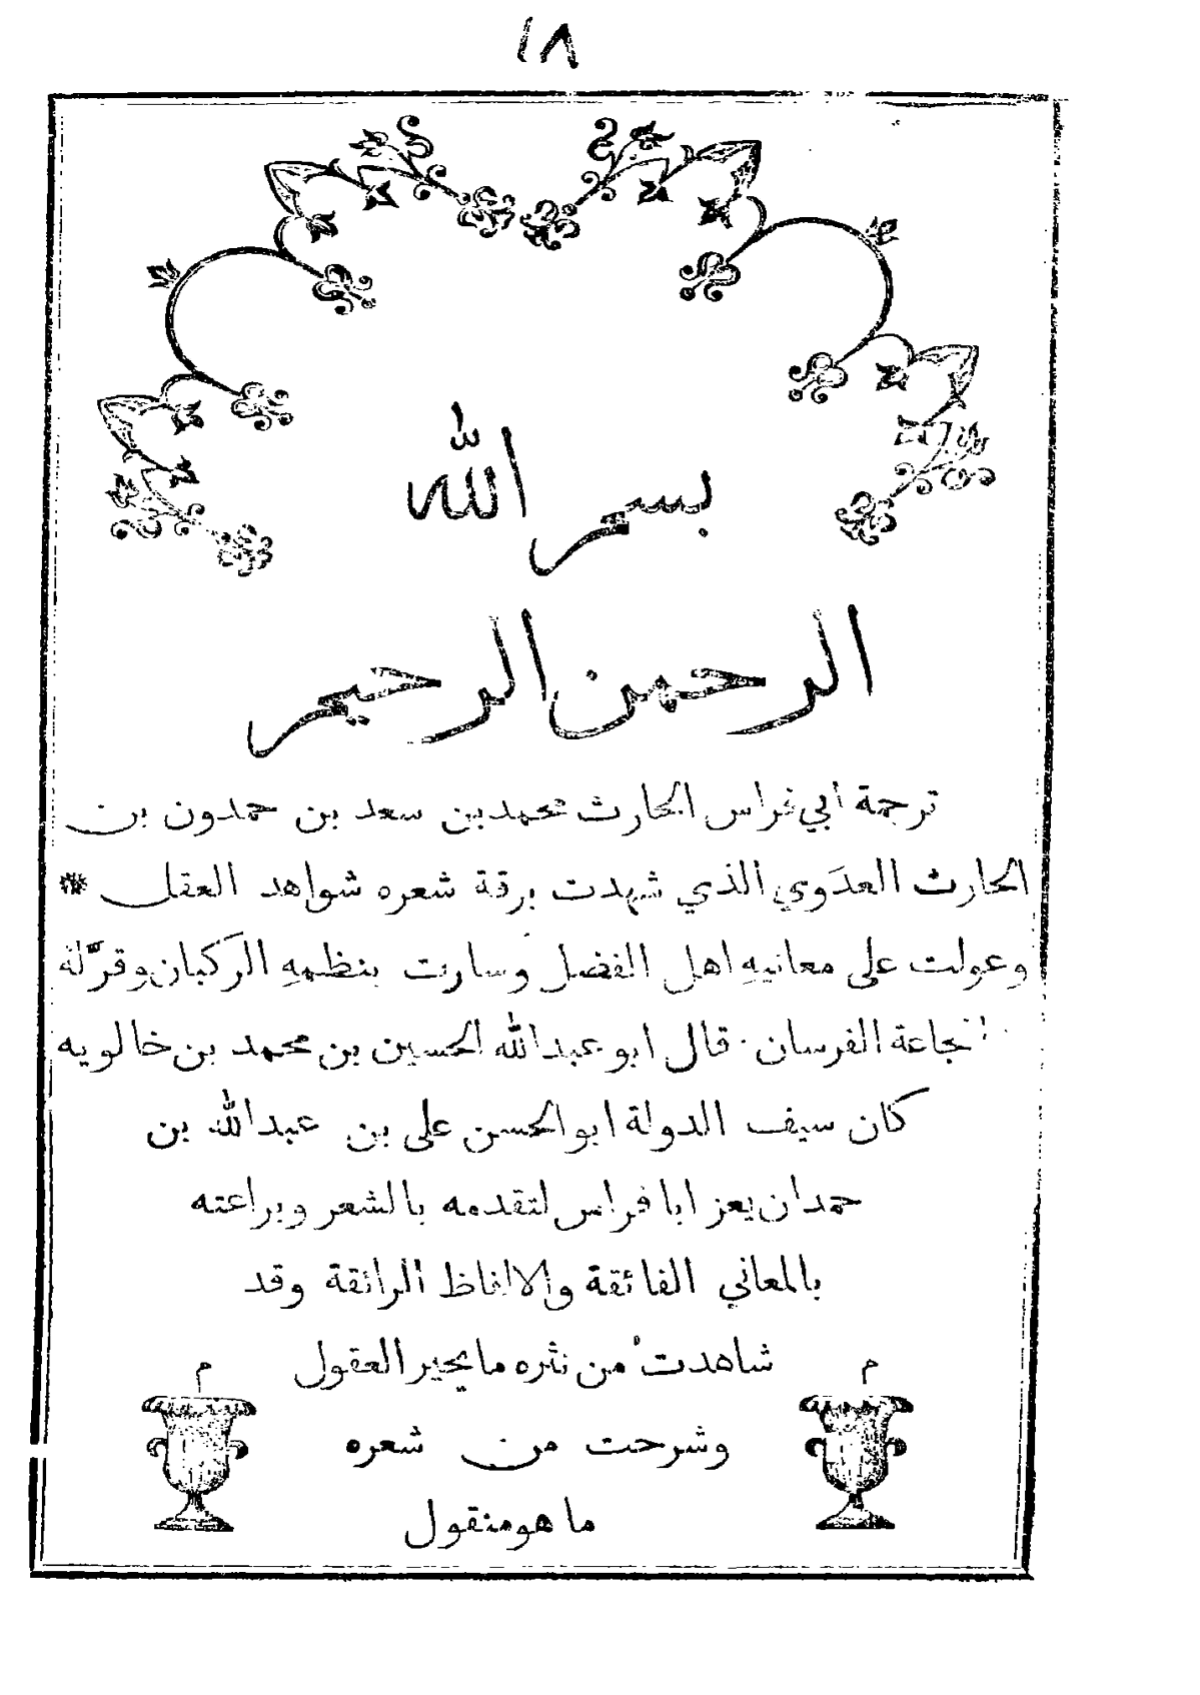 ١٨
بسم الله
الرحمن الرحيم
ترجمة ابي فراس الحارث محمد بن سعد بن حمدون بن
الحارث العدَوي الذي شهدت برقة شعره شواهد العقل *
وعولت على معانيهِ اهل الفضل وسارت بنظمهِ الركبان وقرّلة
الفرسان ٠ قال ابو عبدالله الحسين بن محمد بن خالويه
كان سيف الدولة ابو الحسن على بن عبدالله بن
حمدان يعز ابا فراس لتقدمه بالشعر وبراعته
بالمعاني الفائقة والالفاظ الرائقة وقد
شاهدتُ من نثره ما يحير العقول
م م
وشرحت من شعره
ما هو منقول